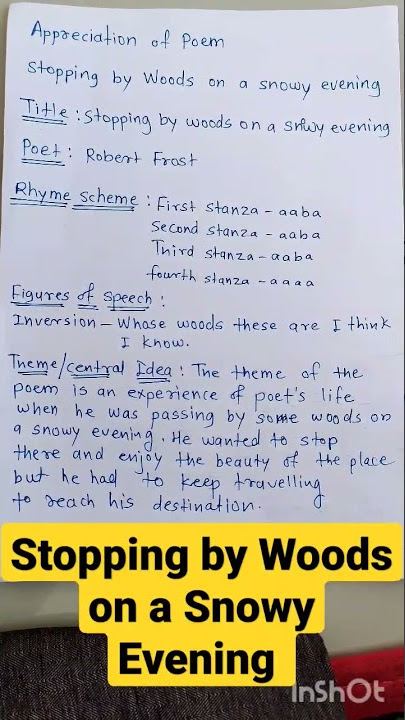 Appreciation of Poem
Stopping by Woods on a snowy evening
Title : Stopping by woods on a snowy evening
Poet : Robert Frost
Rhyme scheme : First stanza - aaba
Second stanza - aaba
Third stanza - aaba
fourth stanza - aaaa
Figures of speech :
Inversion - Whose woods these are I think
I know.
Theme/central Idea : The theme of the
poem is an experience of poet's life
when he was passing by some woods on
a snowy evening. He wanted to stop
there and enjoy the beauty of the place
but he had to keep travelling
to reach his destination.
Stopping by Woods
on a Snowy
Evening
InShOt